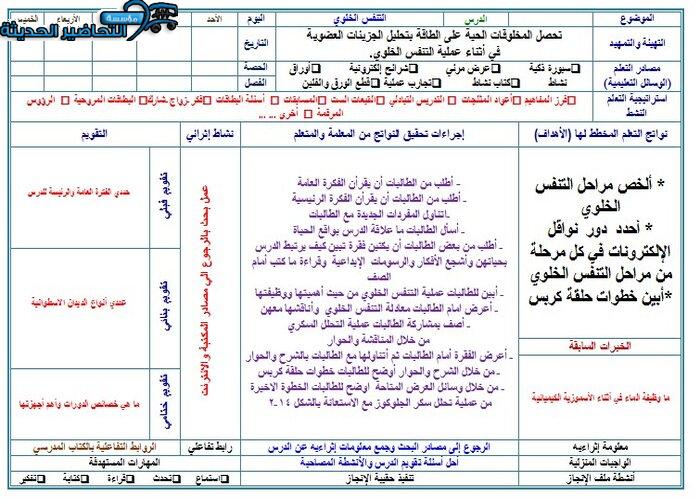 مؤسسة
التحاضير الحديثة
الموضوع
الدرس
التنفس الخلوي
اليوم
الأحد
الأربعاء
الخميس
التهيئة والتمهيد
تحصل المخلوقات الحية على الطاقة بتحليل الجزيئات العضوية
في أثناء عملية التنفس الخلوي.
التاريخ
مصادر التعلم
(الوسائل التعليمية)
□ سبورة ذكية □ عرض مرئي □ شرائح إلكترونية □ أوراق
نشاط □ كتاب نشاط □ تجارب عملية □ قطع الورق والفلين
الحصة
الفصل
استراتيجية التعلم
النشط
□ فرز المفاهيم □ أعواد المثلجات □ التدريس التبادلي □ القبعات الست □ المسابقات □ أسئلة البطاقات □ فكر.زواج.شارك □ البطاقات المروحية □ الرؤوس
المرقمة □ أخرى ... ...
نواتج التعلم المخطط لها (الأهداف)
إجراءات تحقيق النواتج من المعلمة والمتعلم
نشاط إثرائي
التقويم
* ألخص مراحل التنفس
الخلوي
* أحدد دور نواقل
الإلكترونات في كل مرحلة
من مراحل التنفس الخلوي
*أبين خطوات حلقة كربس
الخبرات السابقة
ما وظيفة الماء في أثناء الأسموزية الكيميائية
- أطلب من الطالبات أن يقرأن الفكرة العامة
- أطلب من الطالبات أن يقرأن الفكرة الرئيسية
-اتناول المفردات الجديدة مع الطالبات
- أسأل الطالبات ما علاقة الدرس بواقع الحياة
- أطلب من بعض الطالبات أن يكتبن فقرة تبين كيف يرتبط الدرس
بحياتهن وأشجع الأفكار والرسومات الإبداعية وقراءة ما كتب أمام
الصف
- أبين للطالبات عملية التنفس الخلوي من حيث أهميتها ووظيفتها
- أعرض امام الطالبات معادلة التنفس الخلوي وأناقشها معهن
- أصف بمشاركة الطالبات عملية التحلل السكري
من خلال المناقشة والحوار
- أعرض الفقرة أمام الطالبات ثم أتناولها مع الطالبات بالشرح والحوار
- من خلال الشرح والحوار أوضح للطالبات خطوات حلقة كربس
- من خلال وسائل العرض المتاحة اوضح للطالبات الخطوة الاخيرة
من عملية تحلل سكر الجلوكوز مع الاستعانة بالشكل ١٤-٢
عمل بحث بالرجوع الي مصادر المكتبة والانترنت
تقويم قبلي
حددي الفكرة العامة والرئيسة للدرس
تقويم بنائي
عددي أنواع الديدان الاسطوانية
تقويم ختامي
ما هي خصائص الدورات وأهم أجهزتها
معلومة إثرائية
الرجوع إلى مصادر البحث وجمع معلومات إثرائيه عن الدرس
رابط تفاعلي
الروابط التفاعلية بالكتاب المدرسي
الواجبات المنزلية
أحل أسئلة تقويم الدرس والأنشطة المصاحبة
المهارات المستهدفة
أنشطة ملف الإنجاز
تنفيذ حقيبة الإنجاز
□ استماع □ تحدث □ قراءة □ كتابة □ تفكير